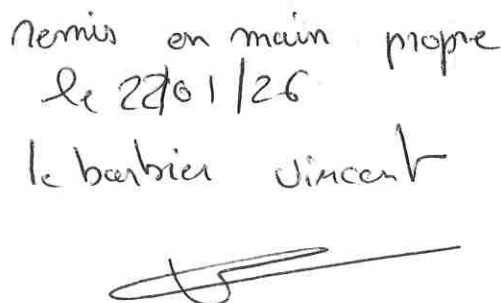 remis en main propre
le 22/01/26
le barbier Vincent